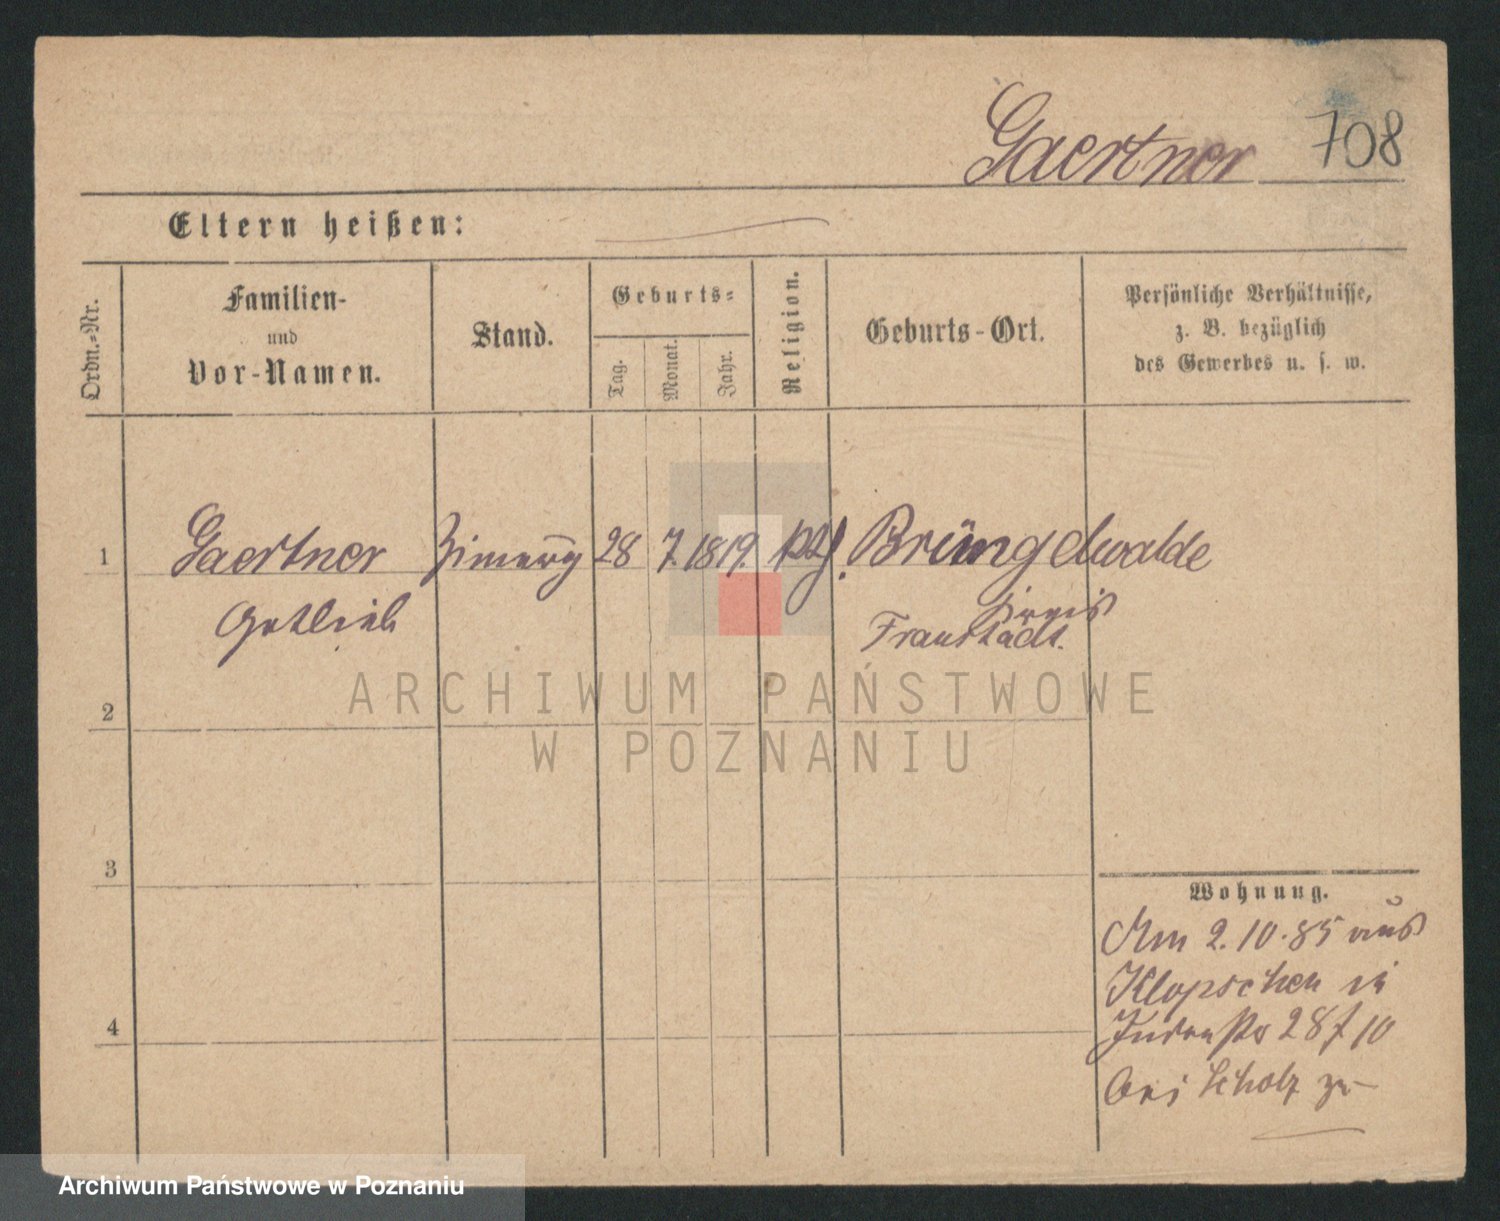 Gaertner 708
Eltern heißen:
Ordn.-Nr.
Familien-
und
Vor-Namen.
Stand.
Geburts-
Tag.
Monat.
Jahr.
Religion.
Geburts-Ort.
Persönliche Verhältnisse,
z. B. bezüglich
des Gewerbes u. s. w.
1 Gaertner 28 7. 1819. Brüngelwalde
Gottlieb Kreis
Fraustadt.
2
3
4
Wohnung.
Am 2.10.85 aus
Klopschen in
28
bei Scholz zu
ARCHIWUM PAŃSTWOWE
W POZNANIU
Archiwum Państwowe w Poznaniu